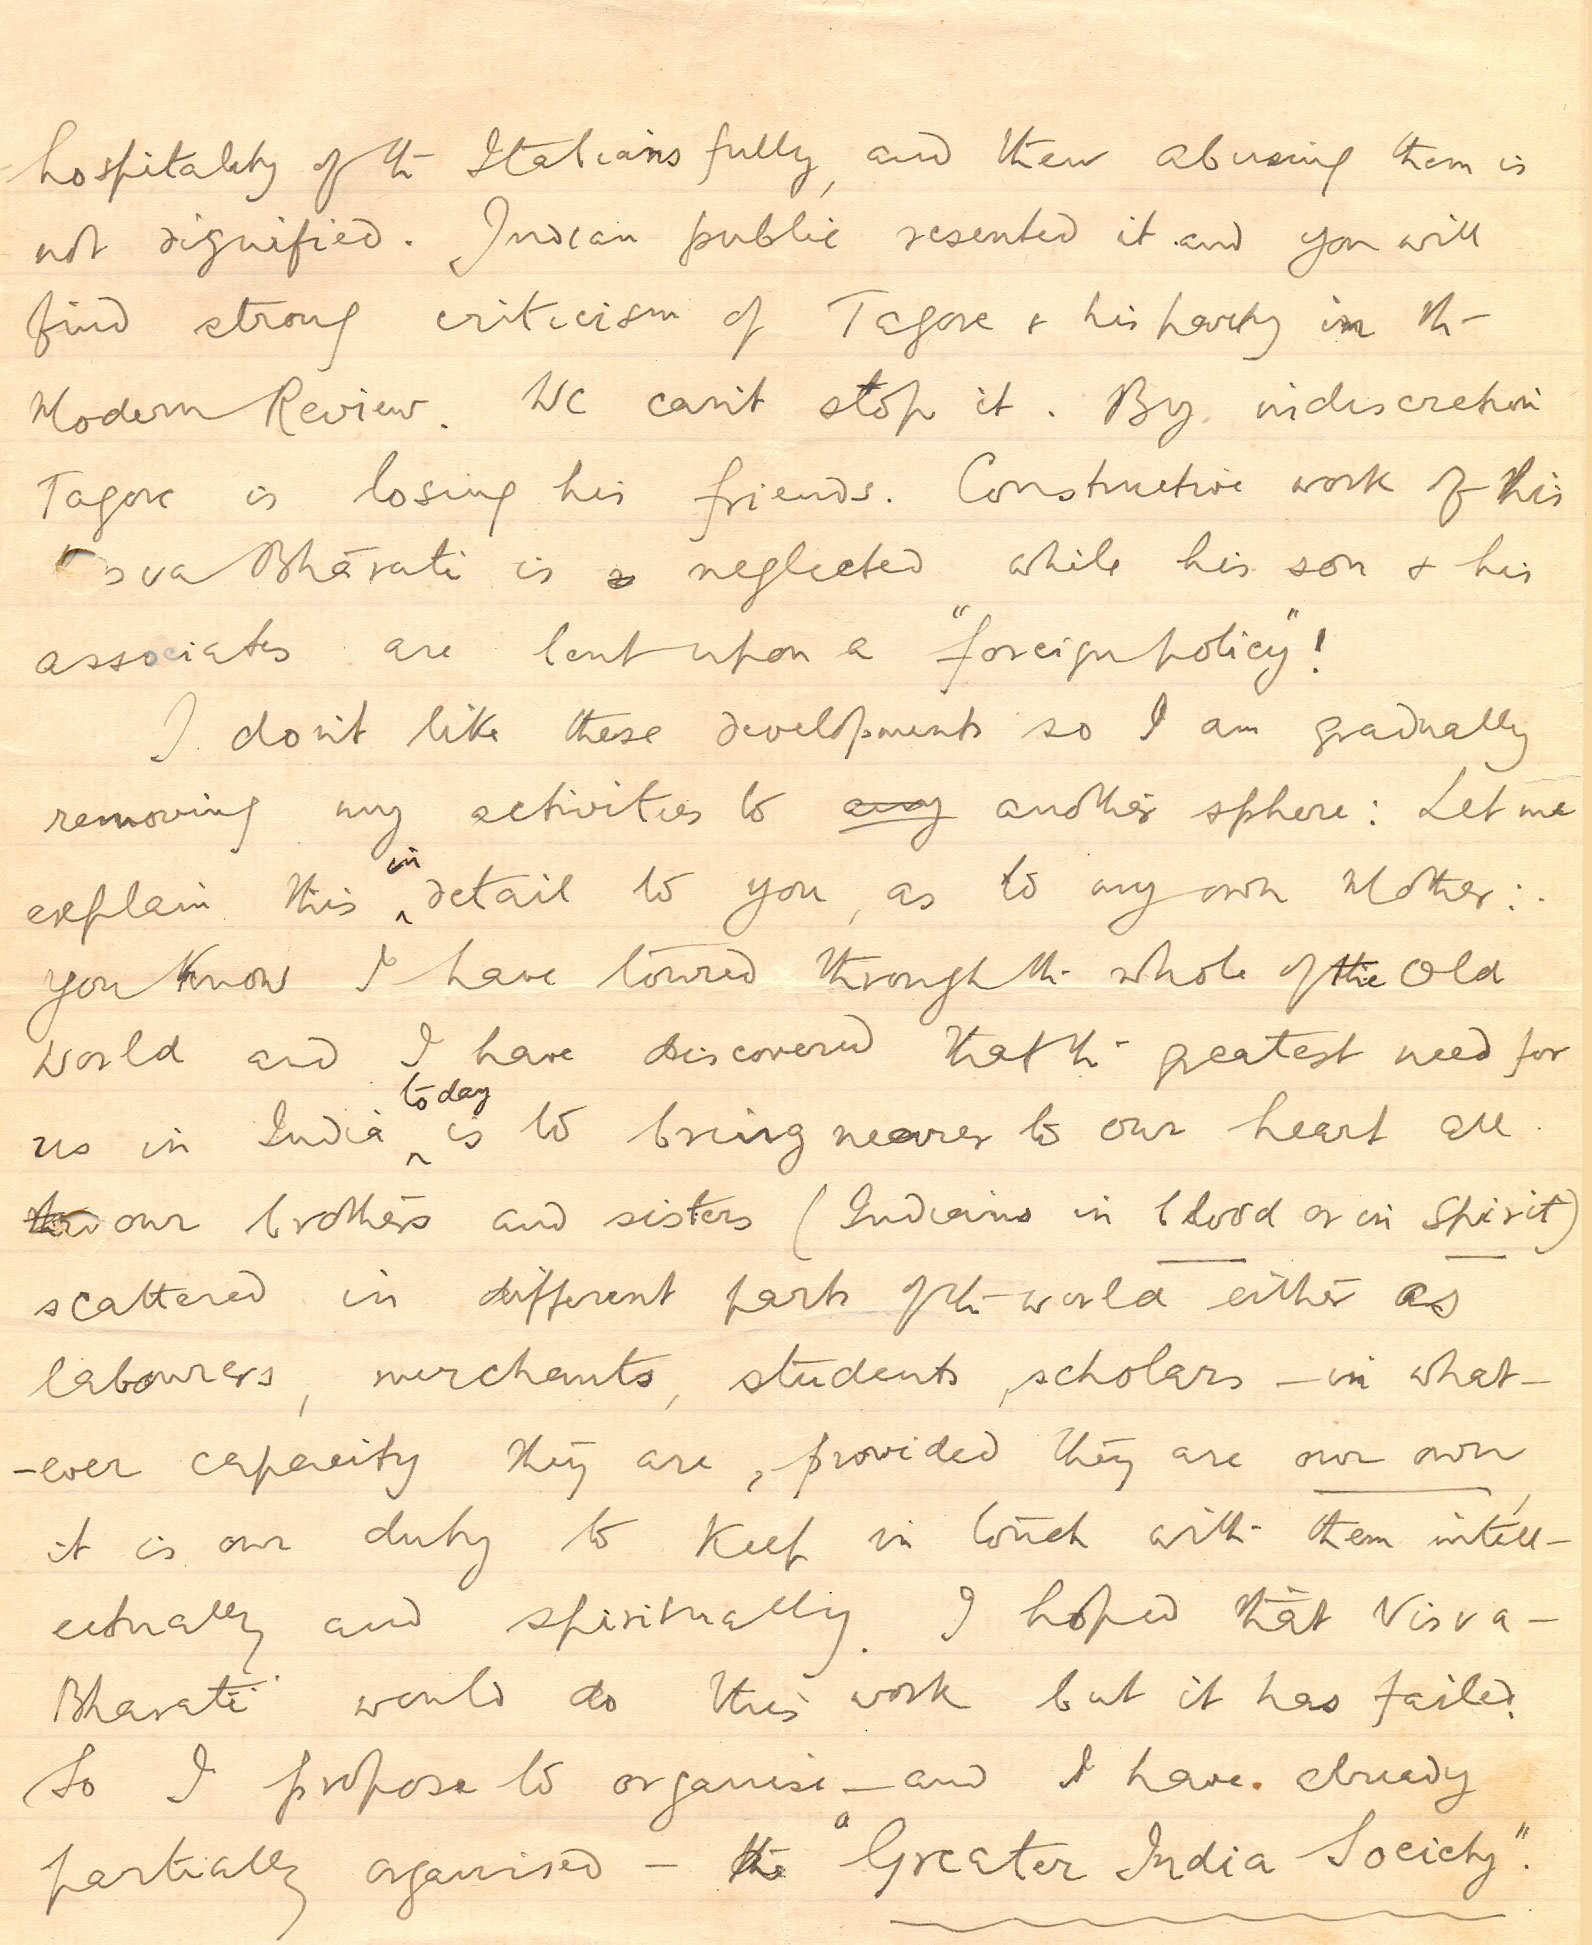 hospitality of the Italians fully, and then abusing them is
not dignified. Indian public resented it and you will
find strong criticism of Tagore & his party in the
Modern Review. We can't stop it. By indiscretion
Tagore is losing his friends. Constructive work of this
sva Bhārati is neglected while his son & his
associates are bent upon a "foreign policy"!
I don't like these developments so I am gradually
removing my activities to any another sphere: Let me
explain this in detail to you, as to my own Mother:.
you know I have toured through the whole of the Old
World and I have discovered that the greatest need for
us in India today is to bring nearer to our heart all
our brothers and sisters (Indians in blood or in spirit)
scattered in different parts of the world either as
labourers, merchants, students, scholars – in what-
-ever capacity they are, provided they are our own,
it is our duty to keep in touch with them intell-
ectually and spiritually. I hoped that Visva-
Bharati would do this work but it has failed.
So I propose to organise – and I have already
partially organised – the "Greater India Society".